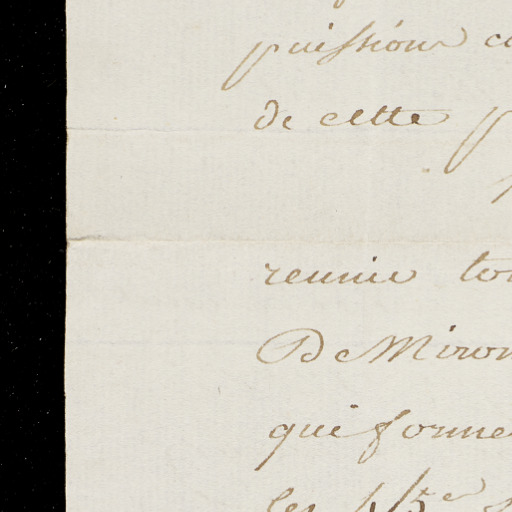 puissions
de cette
reunie
De Miron
qui forme
les